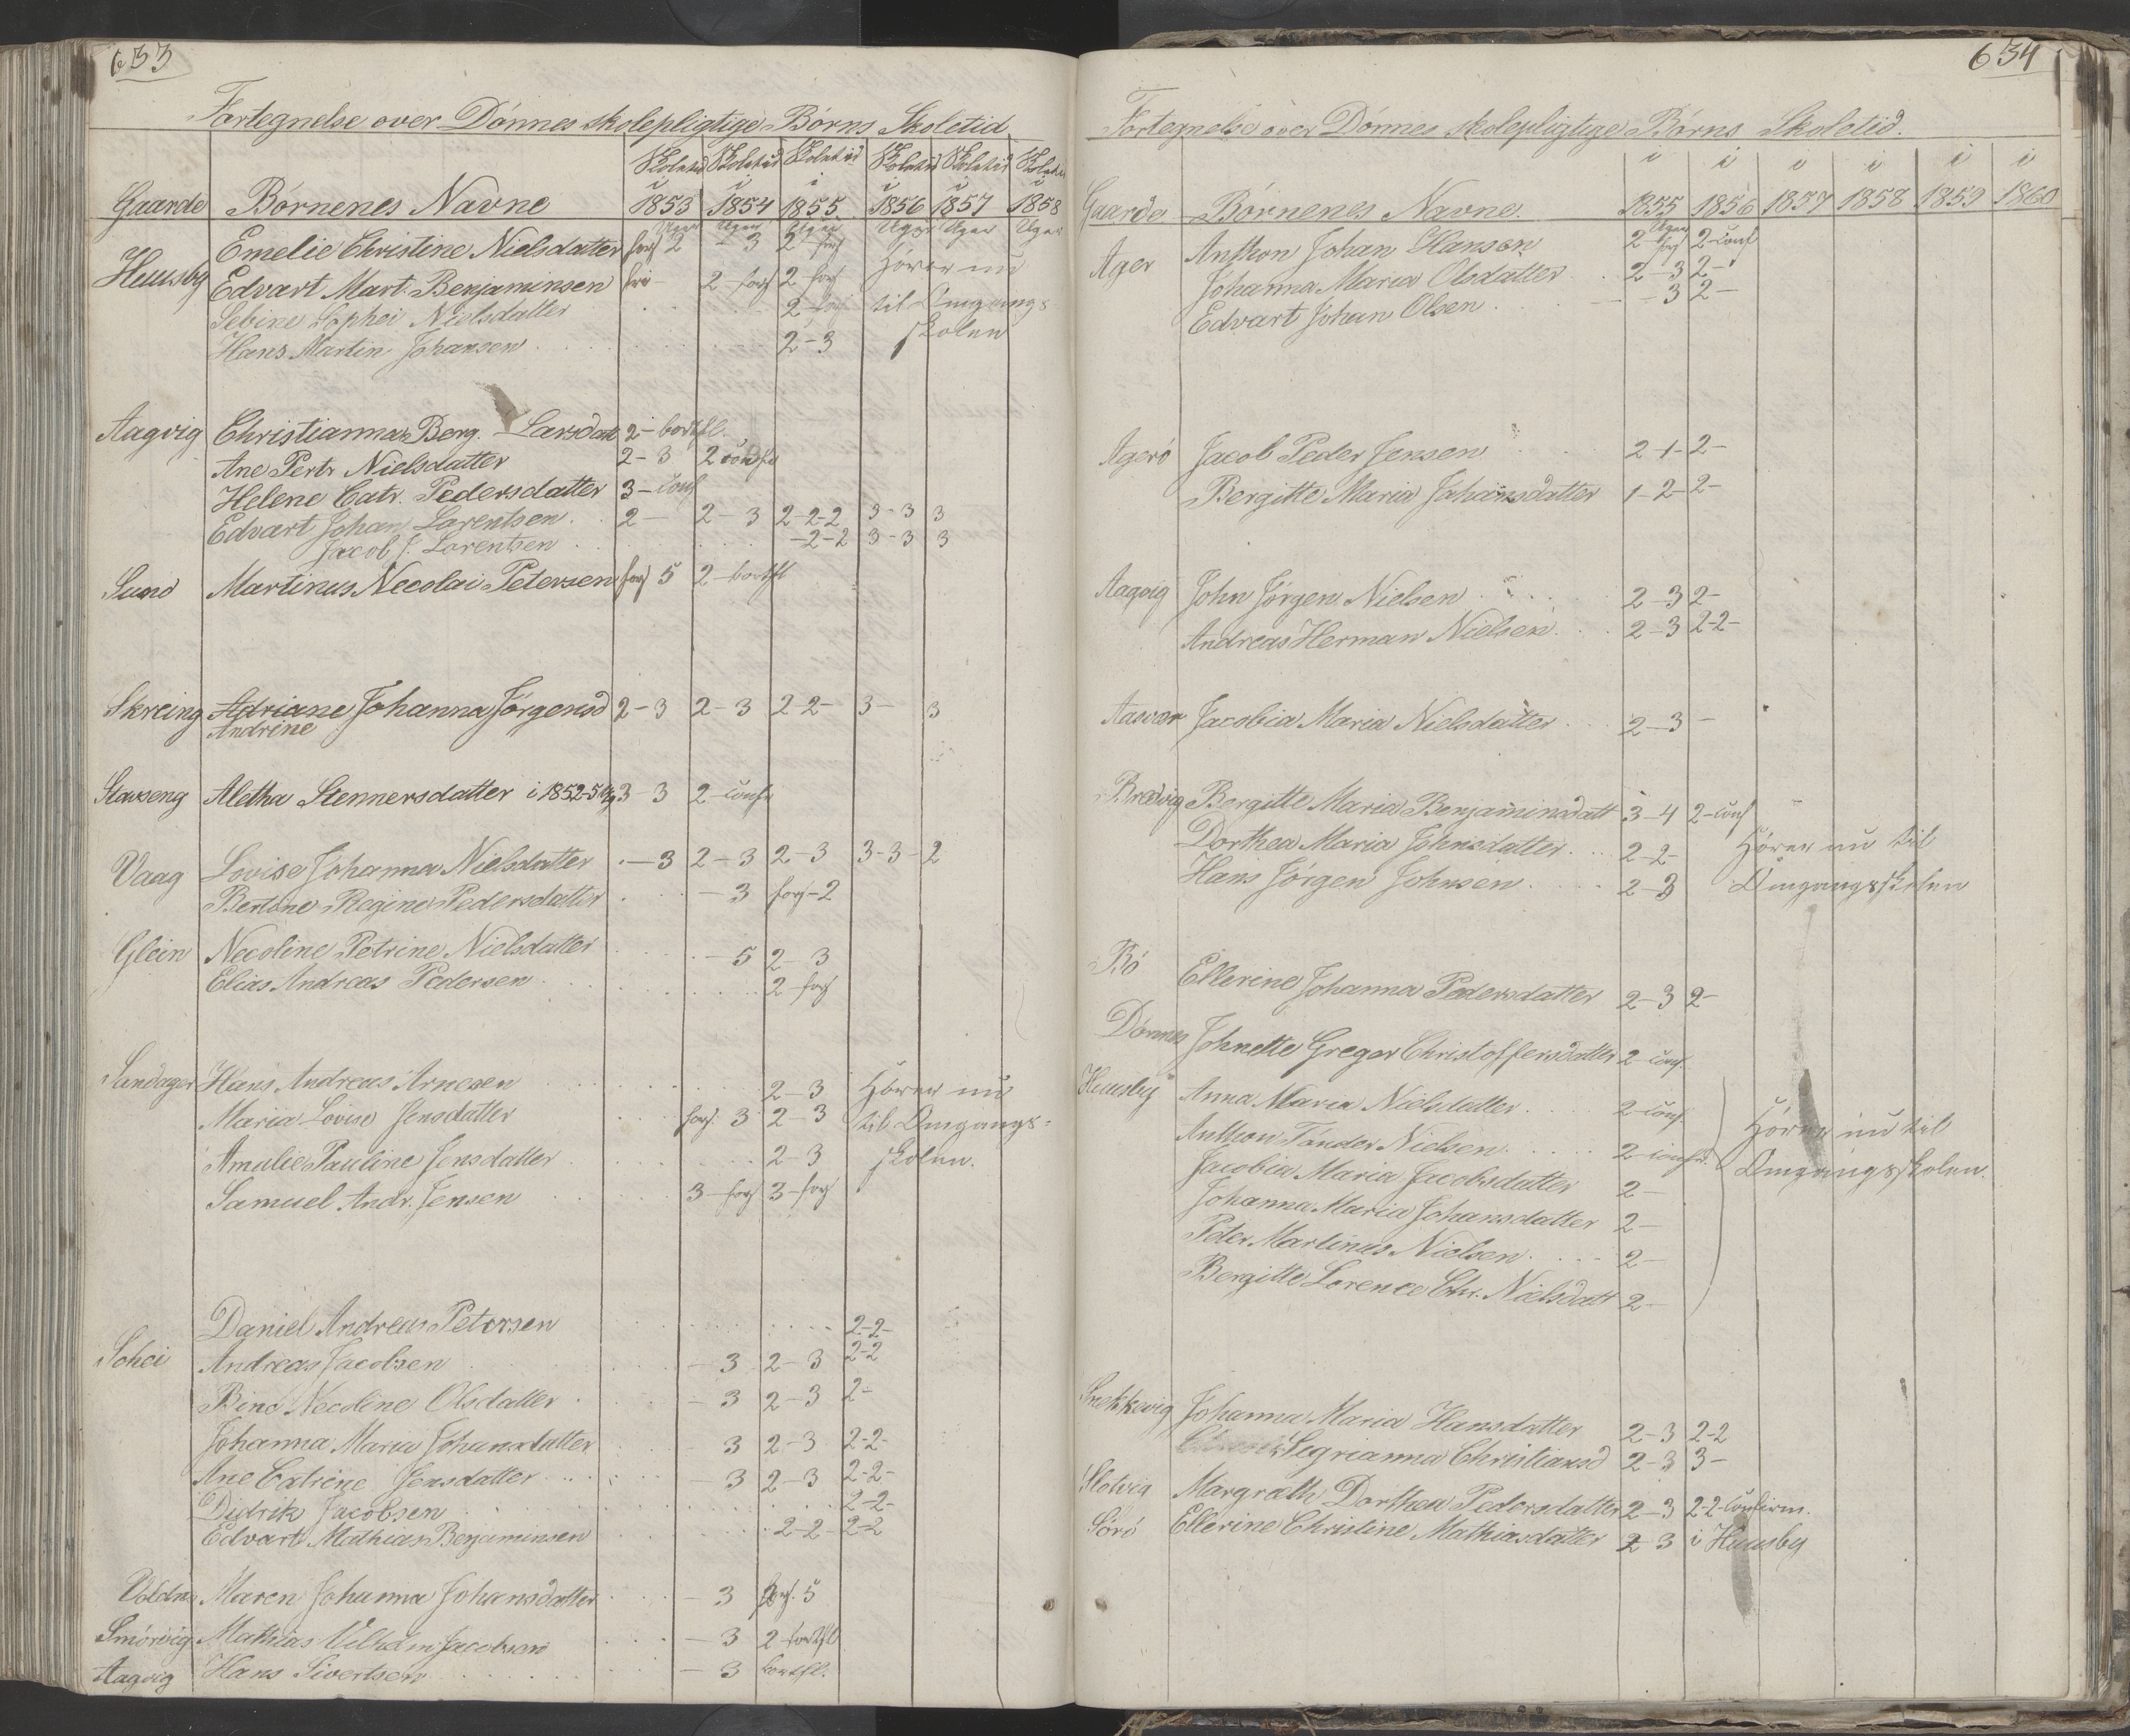 633
Fortegnelse over Dönnes skolepligtige Börns Skoletid
Gaarde Börnenes Navne Skoletid i 1853 Skoletid i 1854 Skoletid i 1855 Skoletid i 1856 Skoletid i 1857 Skoletid i 1858
Uger Uger Uger Uger Uger Uger
Huusby Emelie Christine Nielsdatter fors 2 - 3 2 - fors Hörer nu
Edvart Mart. Benjaminsen fri - 2 - fors 2 - fors til Omgangs-
Sebine Sophei Nielsdatter 2 - fors skolen
Hans Martin Johansen 2 - 3
Aagvig Christianna Berg. Larsdatt 2 - bortfl.
Ane Petr. Nielsdatter 2 - 3 2 confr
Helene Catr. Pedersdatter 3 - conf
Edvart Johan Lorentsen 2 - 2 - 3 2-2-2 3 - 3 3
Jacob J. Lorentsen -2-2 3 - 3 3
Sund Martinus Necolai Petersen fors 5 2 - bortfl
Skreing Adriane Johanna Jörgensd 2 - 3 2 - 3 2 2 - 3 - 3
Andrine
Stavseng Aletha Stennersdatter i 1852-5 Ug 3 - 3 2 - confr
Vaag Lovise Johanna Nielsdatter - 3 2 - 3 2 - 3 3 - 3 - 2
Bertine Regine Pedersdatter - 3 fors - 2
Glein Necoline Petrine Nielsdatter - 5 2 - 3
Elias Andreas Pedersen 2 - fors
Sandager Hans Andreas Arnesen 2 - 3 Hörer nu
Maria Lovise Jensdatter fors. 3 2 - 3 til Omgangs-
Amalie Pauline Jensdatter 2 - 3 skolen.
Samuel Andr. Jensen 3 - fors 3 - fors
Daniel Andreas Petersen 2-2-
Sohei Andreas Jacobsen - 3 2 - 3 2-2
Bine Necoline Olsdatter - 3 2 - 3 2 -
Johanna Maria Johansdatter - 3 2 - 3 2-2-
Ane Catrine Jensdatter - 3 2 - 3 2-2-
Didrik Jacobsen 2-2-
Edvart Mathias Benjaminsen 2 - 2 2-2
Maren Johanna Johansdatter - 3 fors. 5
Smörvig Mathias Vilhelm Jacobsen - 3 2 bortfl
Aagvig Hans Sivertsen - 3 bortfl.
634
Fortegnelse over Dönnes skolepligtige Börns Skoletid.
Gaarde Börnenes Navne. i 1855 i 1856 i 1857 i 1858 i 1859 i 1860
Uger
Ager Anthon Johan Hansen 2 - fors 2 - conf
Johanna Maria Olsdatter 2 - 3 2 -
Edvart Johan Olsen - 3 2 -
Agerö Jacob Peder Jensen 2 - 1 - 2 -
Bergitte Maria Johansdatter 1 - 2 - 2 -
Aagvig John Jörgen Nielsen 2 - 3 2 -
Andreas Herman Nielsen 2 - 3 2-2-
Aasvær Jacobia Maria Nielsdatter 2 - 3 -
Bredvig Bergitte Maria Benjaminsdatt 3 - 4 2 - conf
Dorthea Maria Johnsdatter 2 - 2 - Hörer nu til
Hans Jörgen Johnsen 2 - 3 Omgangsskolen
Bö Ellerine Johanna Pedersdatter 2 - 3 2 -
Dönnes Johnette Greger Christoffersdatter 2 - conf.
Huusby Anna Maria Nielsdatter 2 - conf. Hörer nu til
Anthon Tönder Nielsen 2 - confr Omgangsskolen.
Jacobia Maria Jacobsdatter 2 -
Johanna Maria Johansdatter 2 -
Peder Martinus Nielsen 2 -
Bergitte Lorence Chr. Nielsdatt 2 -
Snekkevig Johanna Maria Hansdatter 2 - 3 2-2
Segrianna Christiansd 2 - 3 3 -
Slotvig Margrath Dorthea Pedersdatter 2 - 3 2-2- Confirm.
Sörö Ellerine Christine Mathiasdatter 2 3 i Huusby